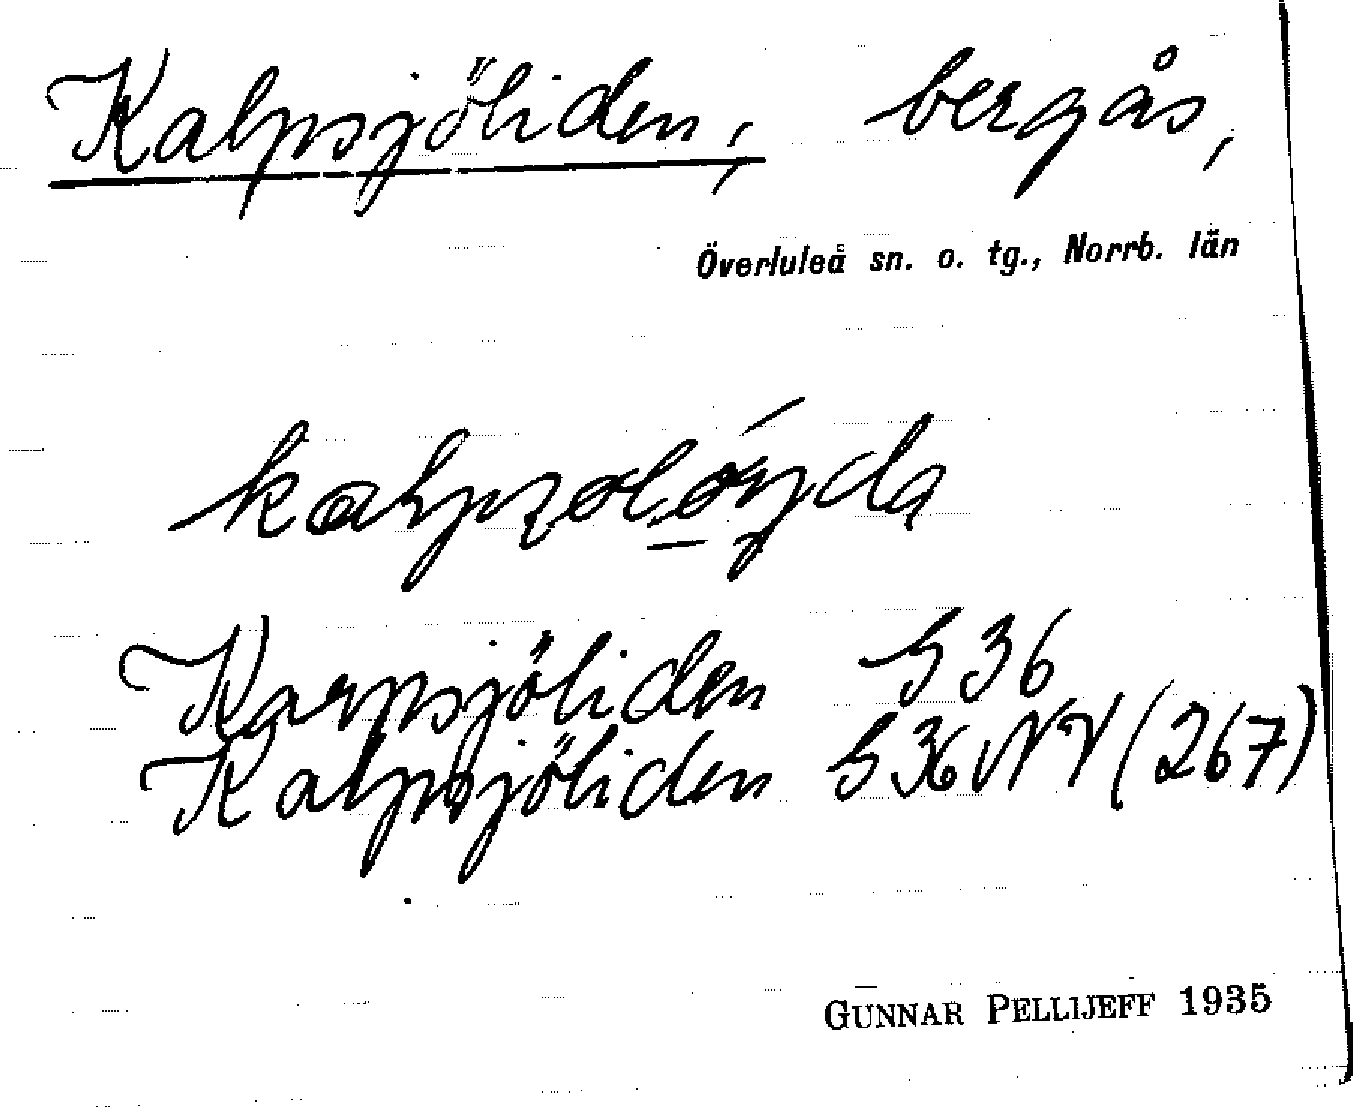 Kalpsjöliden, bergås,
Överluleå sn. o. tg., Norrb. län
Karpsjöliden S36
Kalpsjöliden S36NV (267)
GUNNAR PELLIJEFF 1935